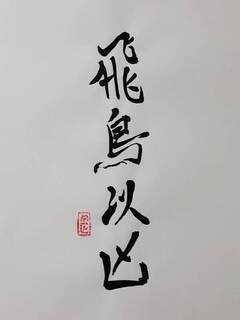 飛鳥以凶